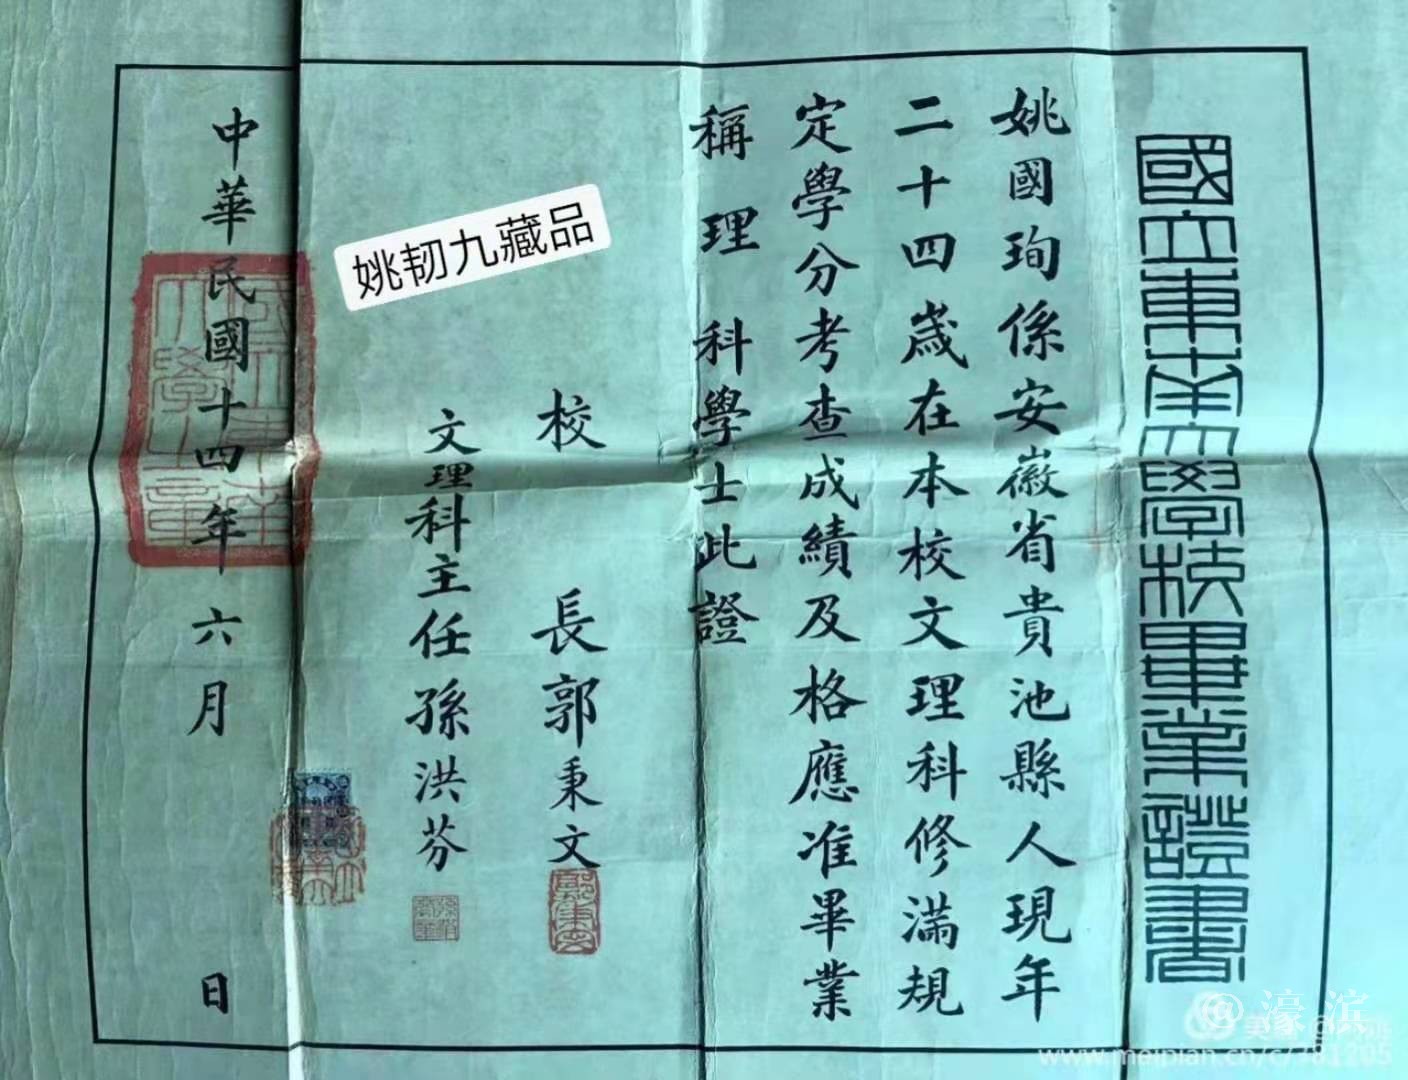 國立東南大學校畢業證書
姚國珣係安徽省貴池縣人現年
二十四歲在本校文理科修滿規
定學分考查成績及格應准畢業
稱理科學士此證
校長郭秉文
文理科主任孫洪芬
中華民國十四年六月 日
姚韧九藏品
國立東南
大學之章
郭秉文
@濠滨
www.meipian.cn/c/781205